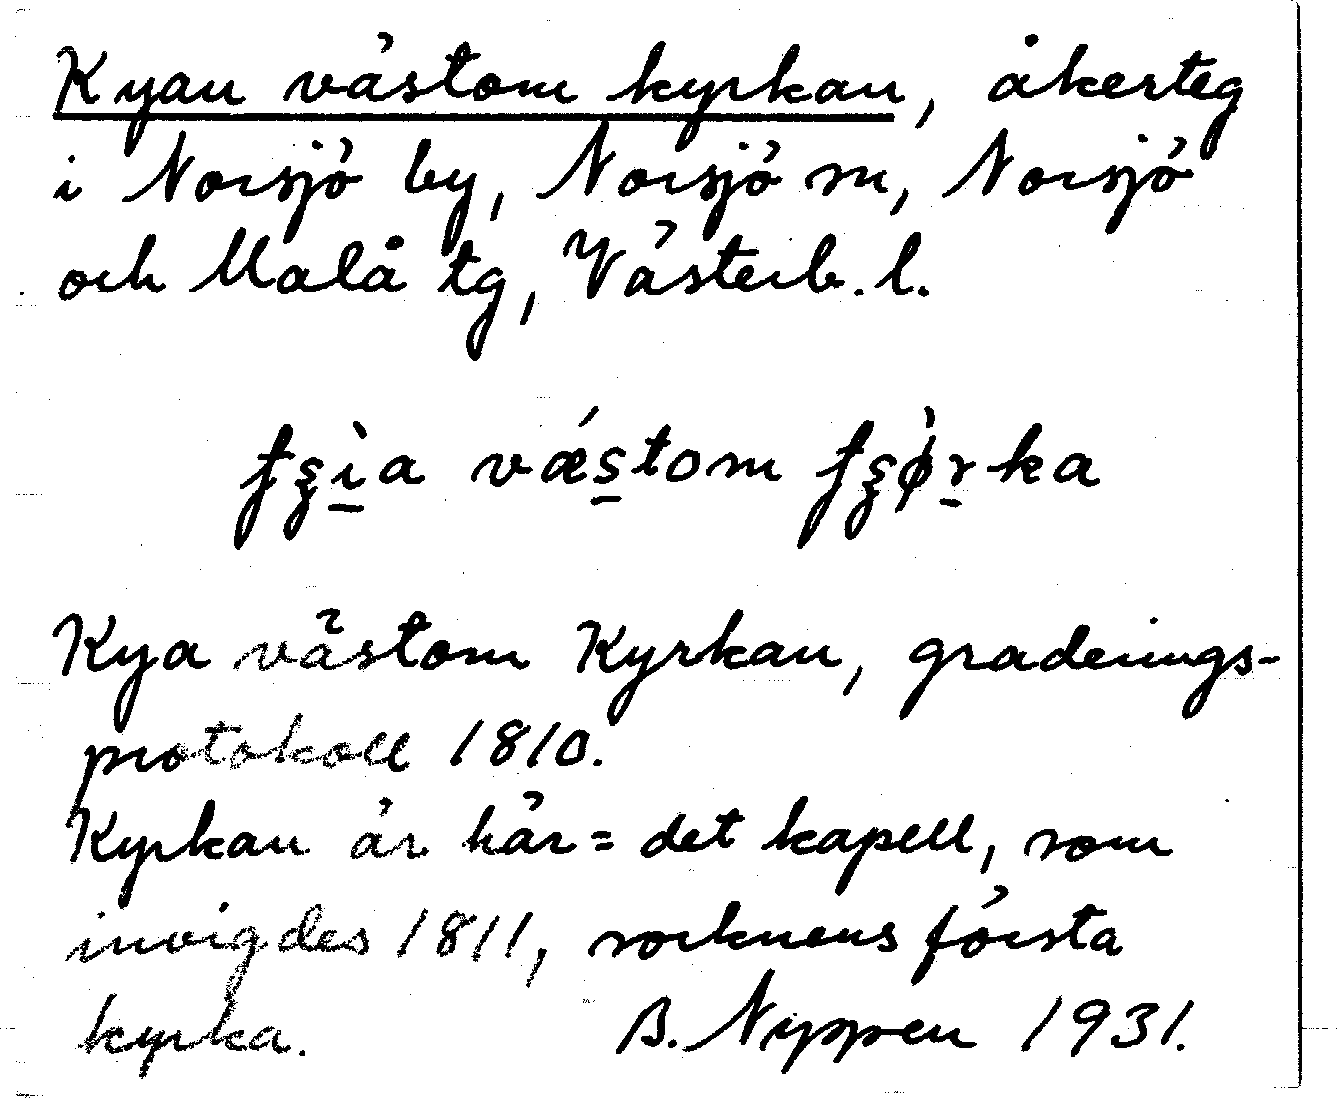 Kyan västom kyrkan, åkerteg
i Norsjö by, Norsjö sn, Norsjö
och Malå tg, Västerb. l.
västom
Kya västom Kyrkan, graderings-
protokoll 1810.
Kyrkan är här = det kapell, som
invigdes 1811, socknens första
kyrka. B. Nyppen 1931.